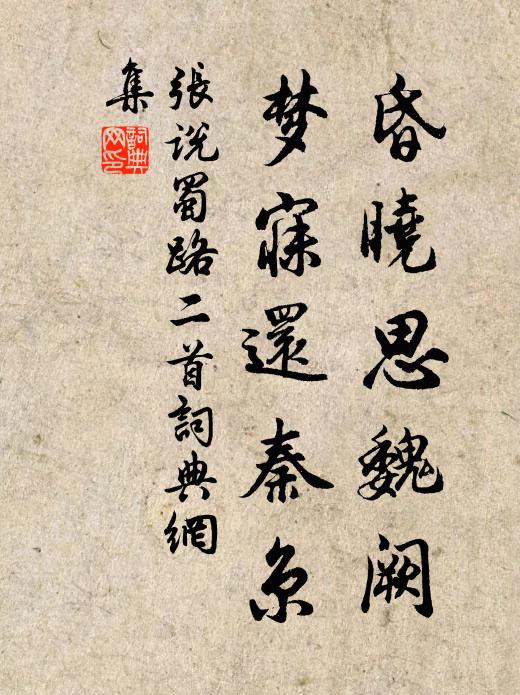 昏曉思魏闕
梦寐還秦京
張說蜀路二首詞典網
集
詞典网印